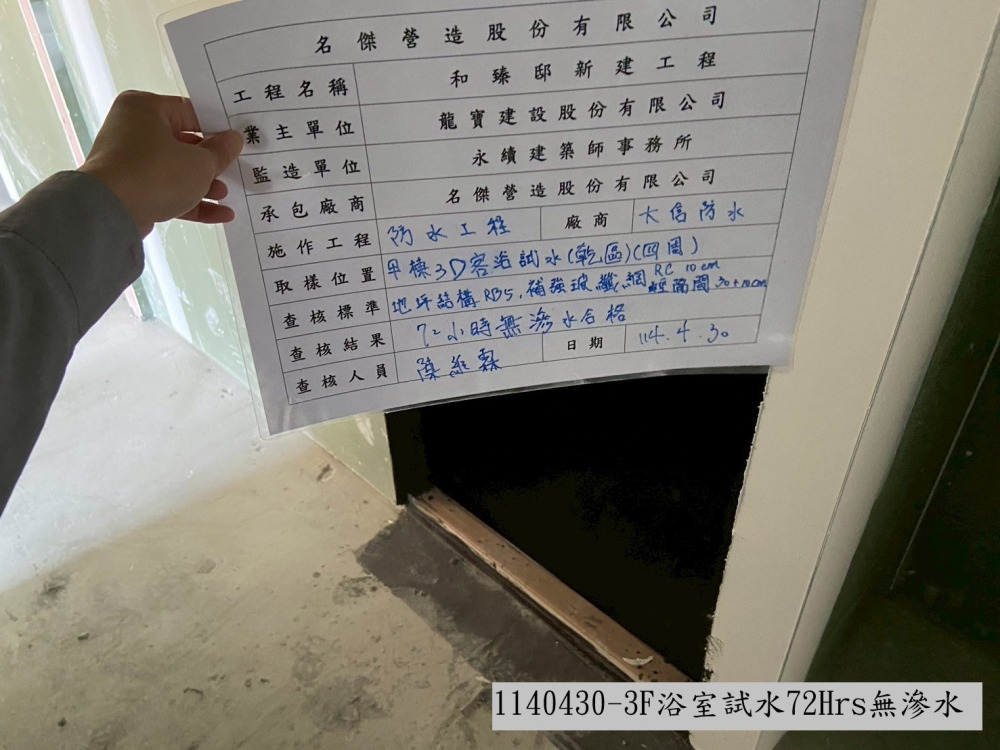 名傑營造股份有限公司
工程名稱 和臻邸新建工程
業主單位 龍寶建設股份有限公司
監造單位 永續建築師事務所
承包廠商 名傑營造股份有限公司
施作工程 防水工程 廠商 大信防水
取樣位置 甲棟3D客浴試水(乾區)(四周)
查核標準 地坪結構RB5,補強玻纖網 RC 10cm 輕隔間 30+10cm
查核結果 72小時無滲水合格
查核人員 陳維霖 日期 114.4.30
1140430-3F浴室試水72Hrs無滲水